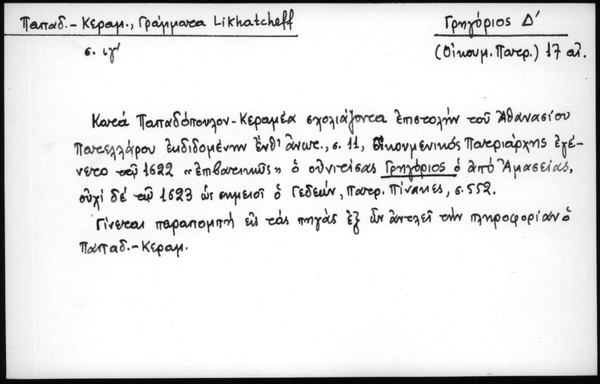 Παπαδ.-Κεραμ., Γράμματα Likhatcheff
Γρηγόριος Δ'
σ. ιγ'
(Οἰκουμ. Πατρ.) 17 αἰ.
Κατά Παπαδόπουλον-Κεραμέα σχολιάζοντα ἐπιστολήν τοῦ Ἀθανασίου
Πατελλάρου ἐκδιδομένην ἔνθ' ἀνωτ., σ. 11, Οἰκουμενικός Πατριάρχης ἐγέ-
νετο τῷ 1622 «ἐπιβατικῶς» ὁ οὑνιτίσας Γρηγόριος ὁ ἀπό Ἀμασείας,
οὐχί δέ τῷ 1623 ὡς σημειοῖ ὁ Γεδεών, Πατρ. Πίνακες, σ. 552.
Γίνεται παραπομπή εἰς τάς πηγάς ἐξ ὧν ἀντλεῖ τήν πληροφορίαν ὁ
Παπαδ.-Κεραμ.